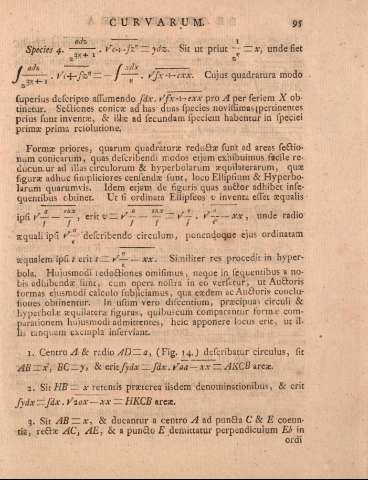 CURVARUM. 95
Species 4. adz / z^{η+1} . √e+fz^η = ydz. Sit ut prius 1/z^η = x, unde fiet
∫ adz / z^{η+1} . √e+fz^η = − ∫ adx / η . √fx+exx. Cujus quadratura modo
superius descripto assumendo ſdx. √fx+exx pro A per seriem X ob-
tinetur. Sectiones conicæ ad has duas species novissimas pertinentes
prius sunt inventæ, & illæ ad secundam speciem habentur in speciei
primæ prima resolutione.
Formæ priores, quarum quadraturæ reductæ sunt ad areas sectio-
num conicarum, quas describendi modos etjam exhibuimus facile re-
ducuntur ad illas circulorum & hyperbolarum æquilaterarum, quæ
figuræ adhuc simpliciores censendæ sunt, loco Ellipsium & Hyperbo-
larum quarumvis. Idem etjam de figuris quas auctor adhibet inse-
quentibus obtinet. Ut si ordinata Ellipseos v inventa esset æqualis
unde radio
æquali ipsi describendo circulum, ponendoque ejus ordinatam
æqualem ipsi Similiter res procedit in hyper-
bola. Hujusmodi reductiones omisimus, neque in sequentibus a no-
bis adhibendæ sunt, cum opera nostra in eo versetur, ut Auctoris
formas ejusmodi calculo subjiciamus, qua eædem ac Auctoris conclu-
siones obtinentur. In usum vero discentium, præcipuas circuli &
hyperbolæ æquilateræ figuras, quibuscum comparantur formæ com-
parationem hujusmodi admittentes, heic apponere locus erit, ut il-
lis tanquam exempla inserviant.
1. Centro A & radio AD=a, (Fig. 14.) describatur circulus, sit
AB=x, BC=y, & erit ſydx=ſdx. √aa−xx=AKCB areæ.
2. Sit HB=x retentis præterea iisdem denominationibus, & erit
ſydx=ſdx. √2ax−xx=HKCB areæ.
3. Sit AB=x, & ducantur a centro A ad puncta C & E coeun-
tia, rectæ AC, AE, & a puncto E demittatur perpendiculum Eb in
ordi